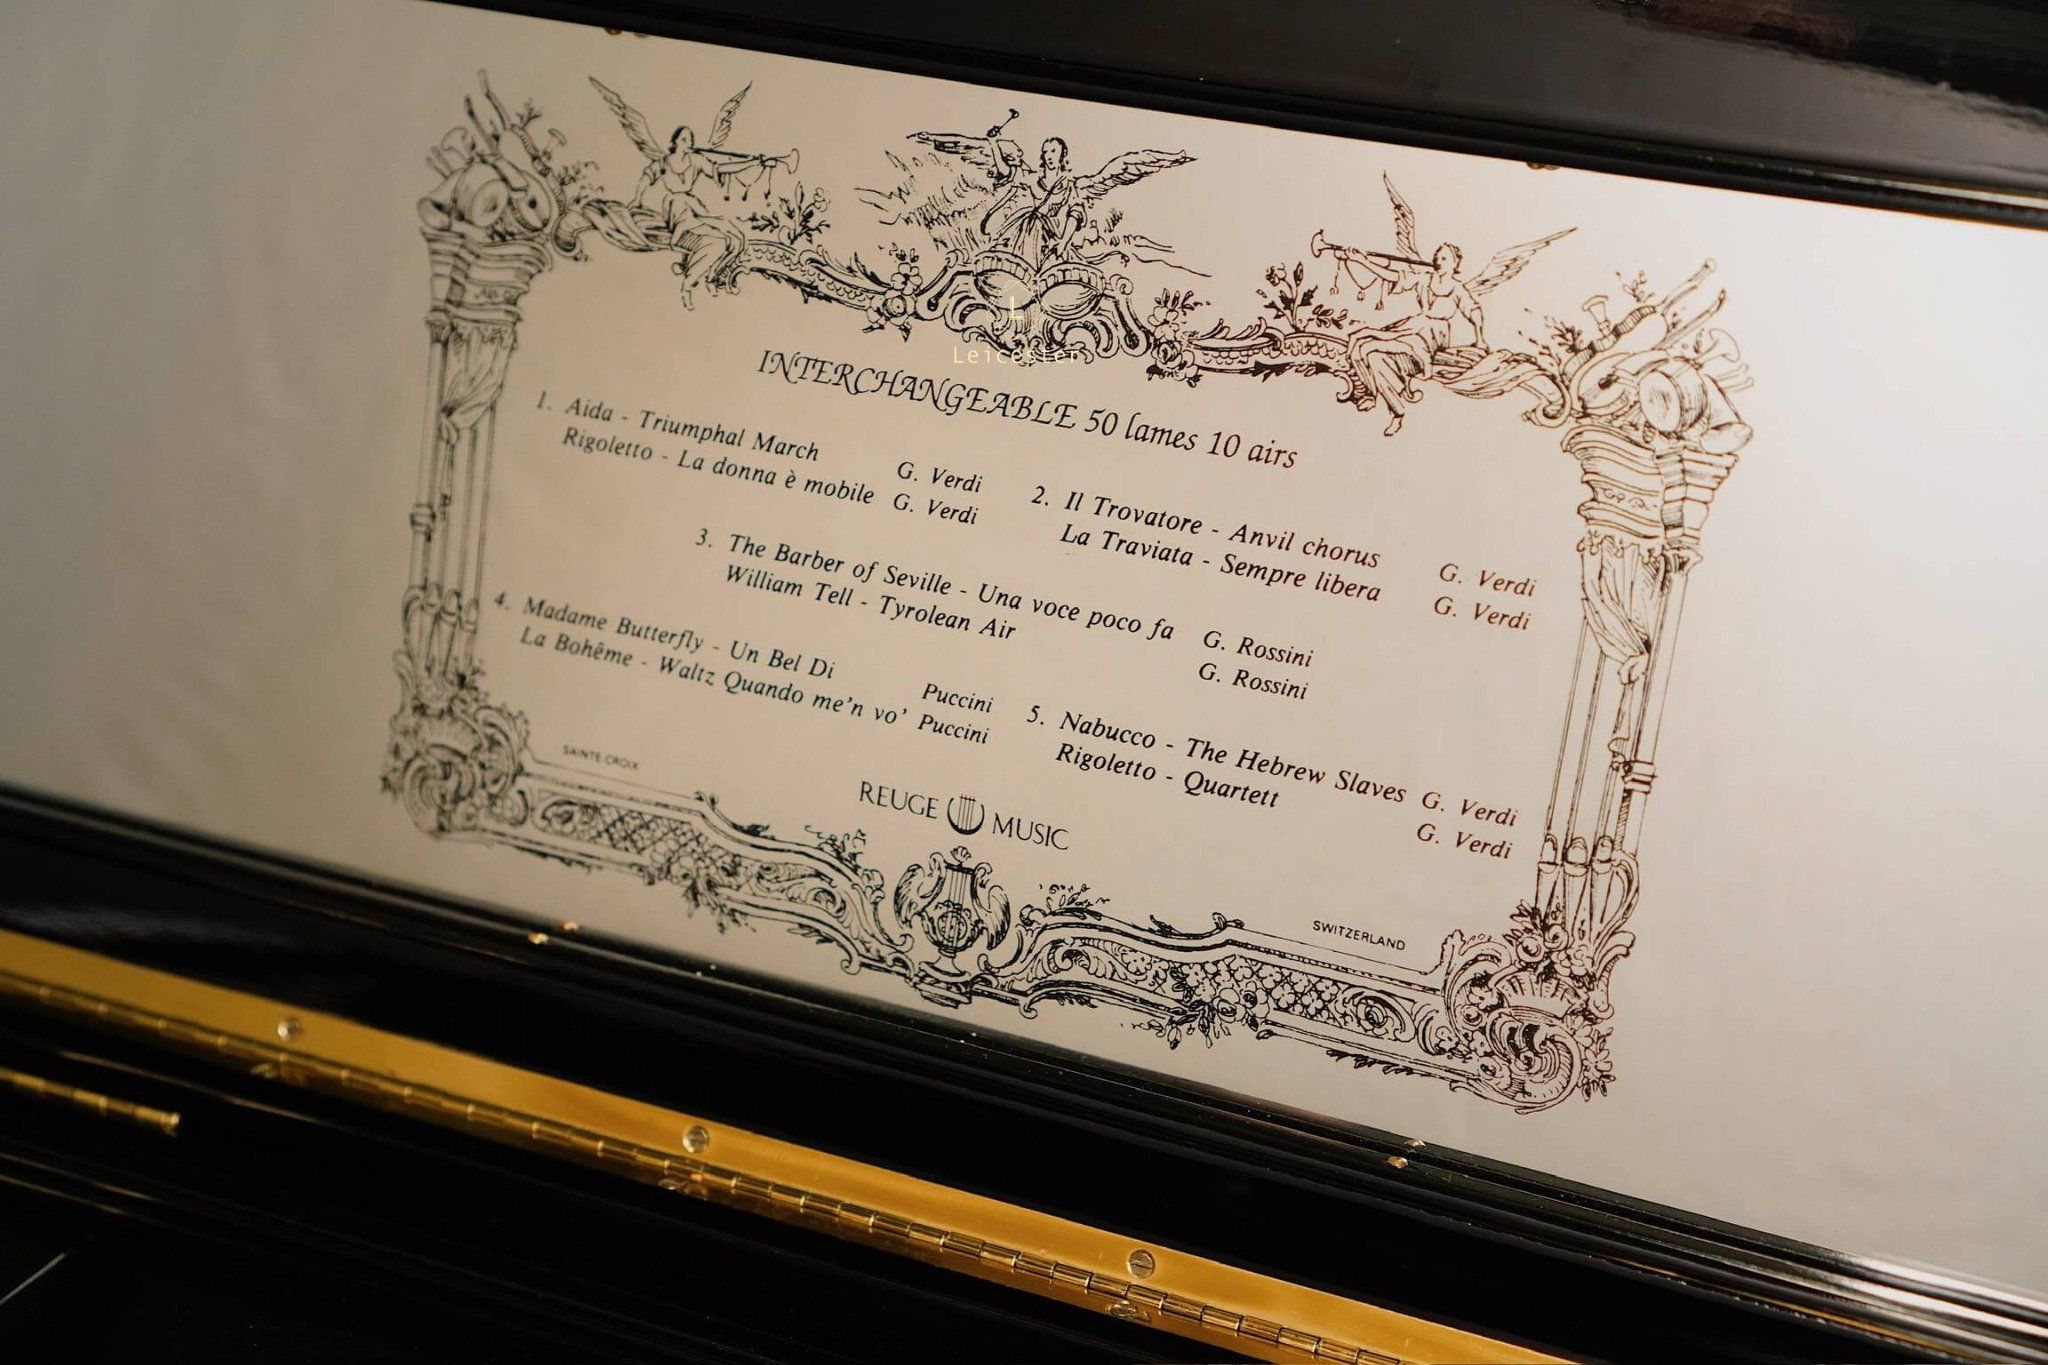 L
Leicester
INTERCHANGEABLE 50 lames 10 airs
1. Aida - Triumphal March G. Verdi
Rigoletto - La donna è mobile G. Verdi
2. Il Trovatore - Anvil chorus G. Verdi
La Traviata - Sempre libera G. Verdi
3. The Barber of Seville - Una voce poco fa G. Rossini
William Tell - Tyrolean Air G. Rossini
4. Madame Butterfly - Un Bel Di Puccini
La Bohême - Waltz Quando me'n vo' Puccini
5. Nabucco - The Hebrew Slaves G. Verdi
Rigoletto - Quartett G. Verdi
SAINTE CROIX
REUGE MUSIC
SWITZERLAND